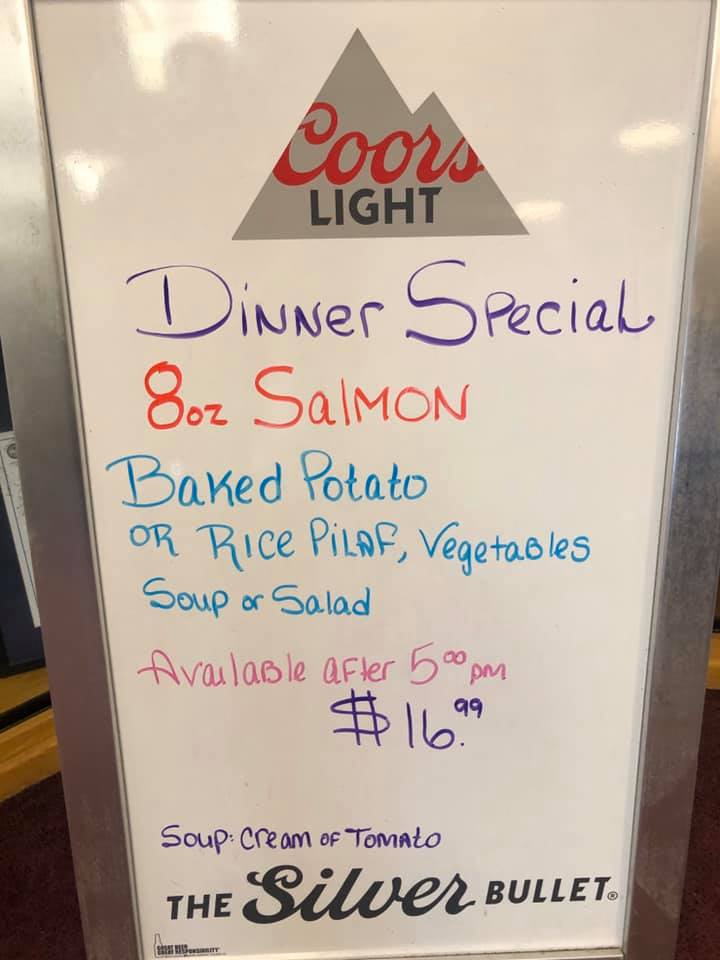 Coors
LIGHT
Dinner Special
8oz Salmon
Baked Potato
or Rice Pilaf, Vegetables
Soup or Salad
Available after 5⁰⁰ pm
$16.⁹⁹
Soup: Cream of Tomato
THE Silver BULLET®
GREAT BEER
GREAT RESPONSIBILITY